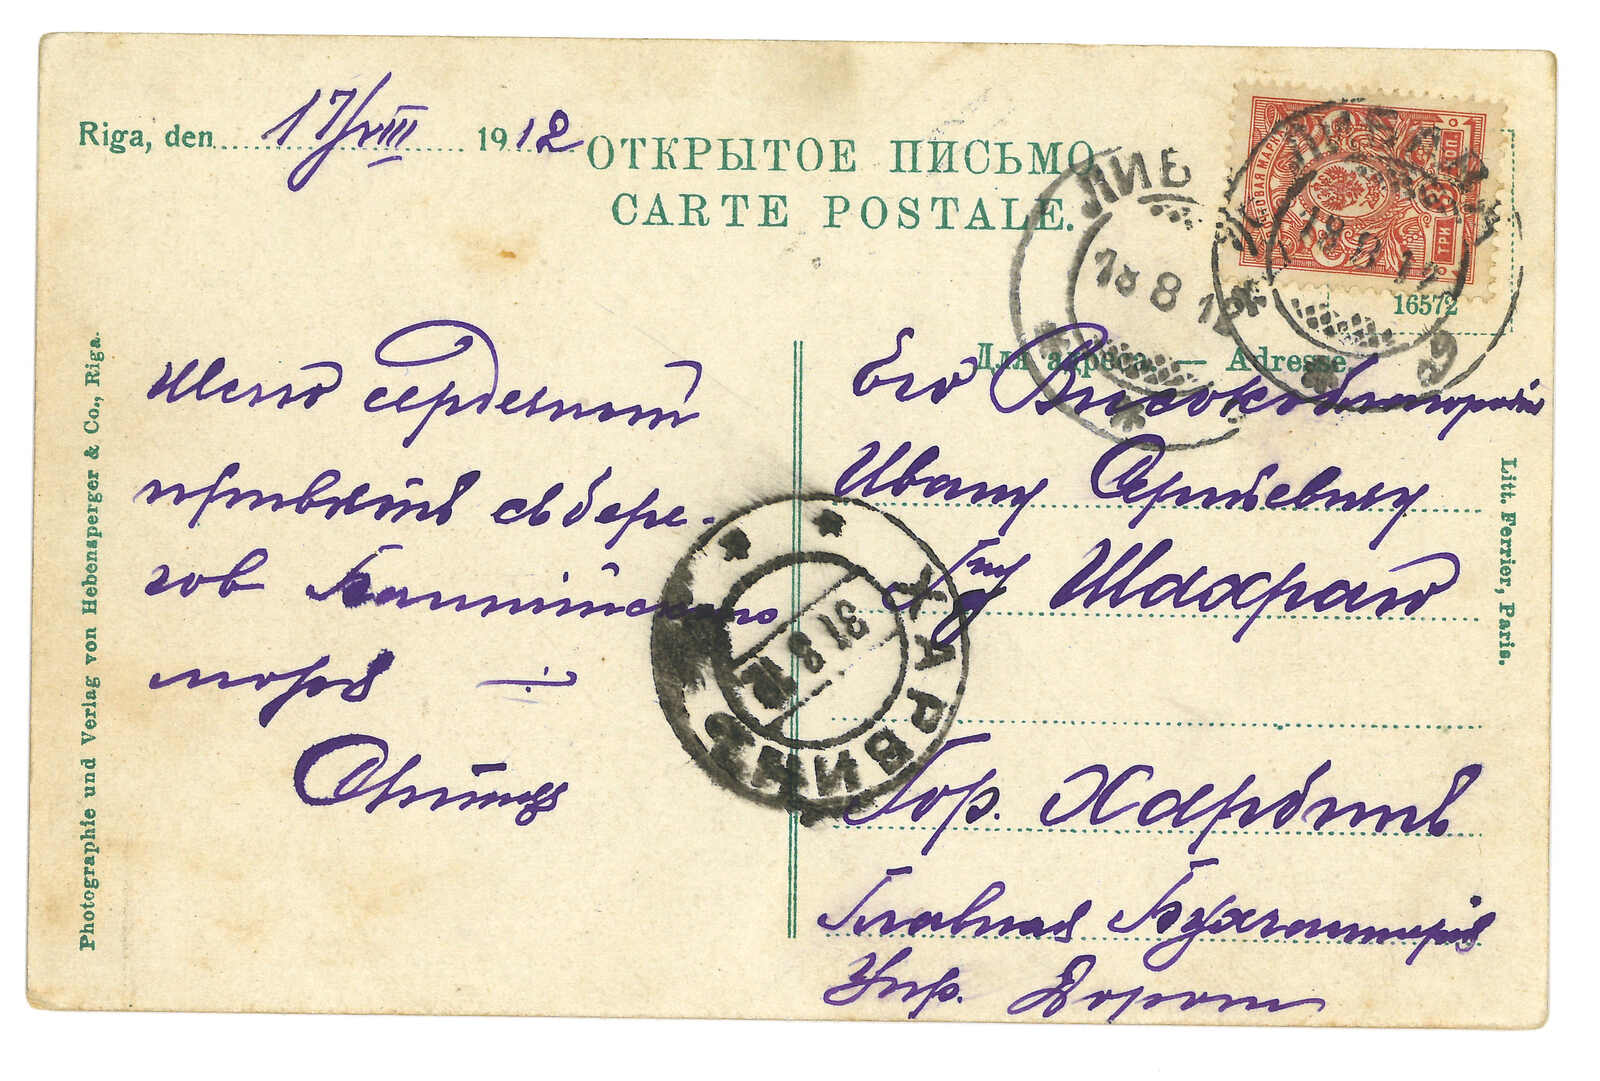 Riga, den 17/VIII 1912
ОТКРЫТОЕ ПИСЬМО.
CARTE POSTALE.
ЛИБ
18 8 12
ЛИБАВА
18 8 12
2
МАРКА
ТРИ
КОП
16572
Для адреса. — Adresse.
Шлю сердечный
привѣтъ съ бере-
гов Балтійскаго
моря
Его Высокоблагородію
Ивану Сергѣевичу
Г-ну
Гор. Харбинъ
Главная Бухгалтерія
Упр. Дороги
ХАРБИНЪ
31 8 12
Photographie und Verlag von Hebensperger & Co., Riga.
Litt. Ferrier, Paris.